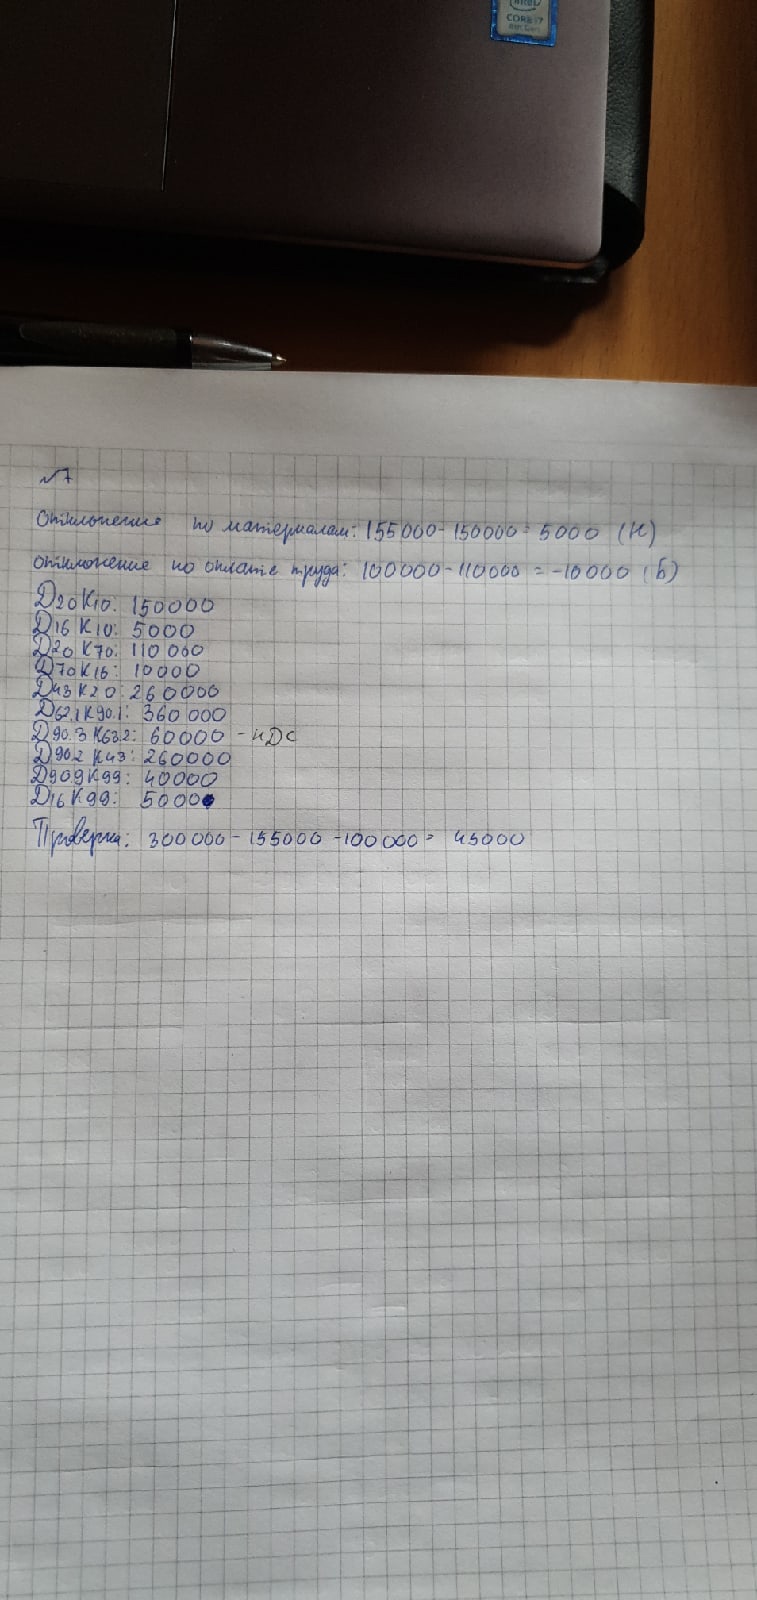 CORE i7
№7
Отклонение по материалам: 155000 - 150000 = 5000 (Н)
отклонение по оплате труда: 100000 - 110000 = -10000 (Б)
Д20 К10: 150000
Д16 К10: 5000
Д20 К70: 110000
Д70 К16: 10000
Д43 К20: 260000
Д62.1 К90.1: 360 000
Д90.3 К68.2: 60000 - НДС
Д90.2 К43: 260000
Д90.9 К99: 40000
Д16 К99: 5000
Проверка: 300000 - 155000 - 100000 = 45000